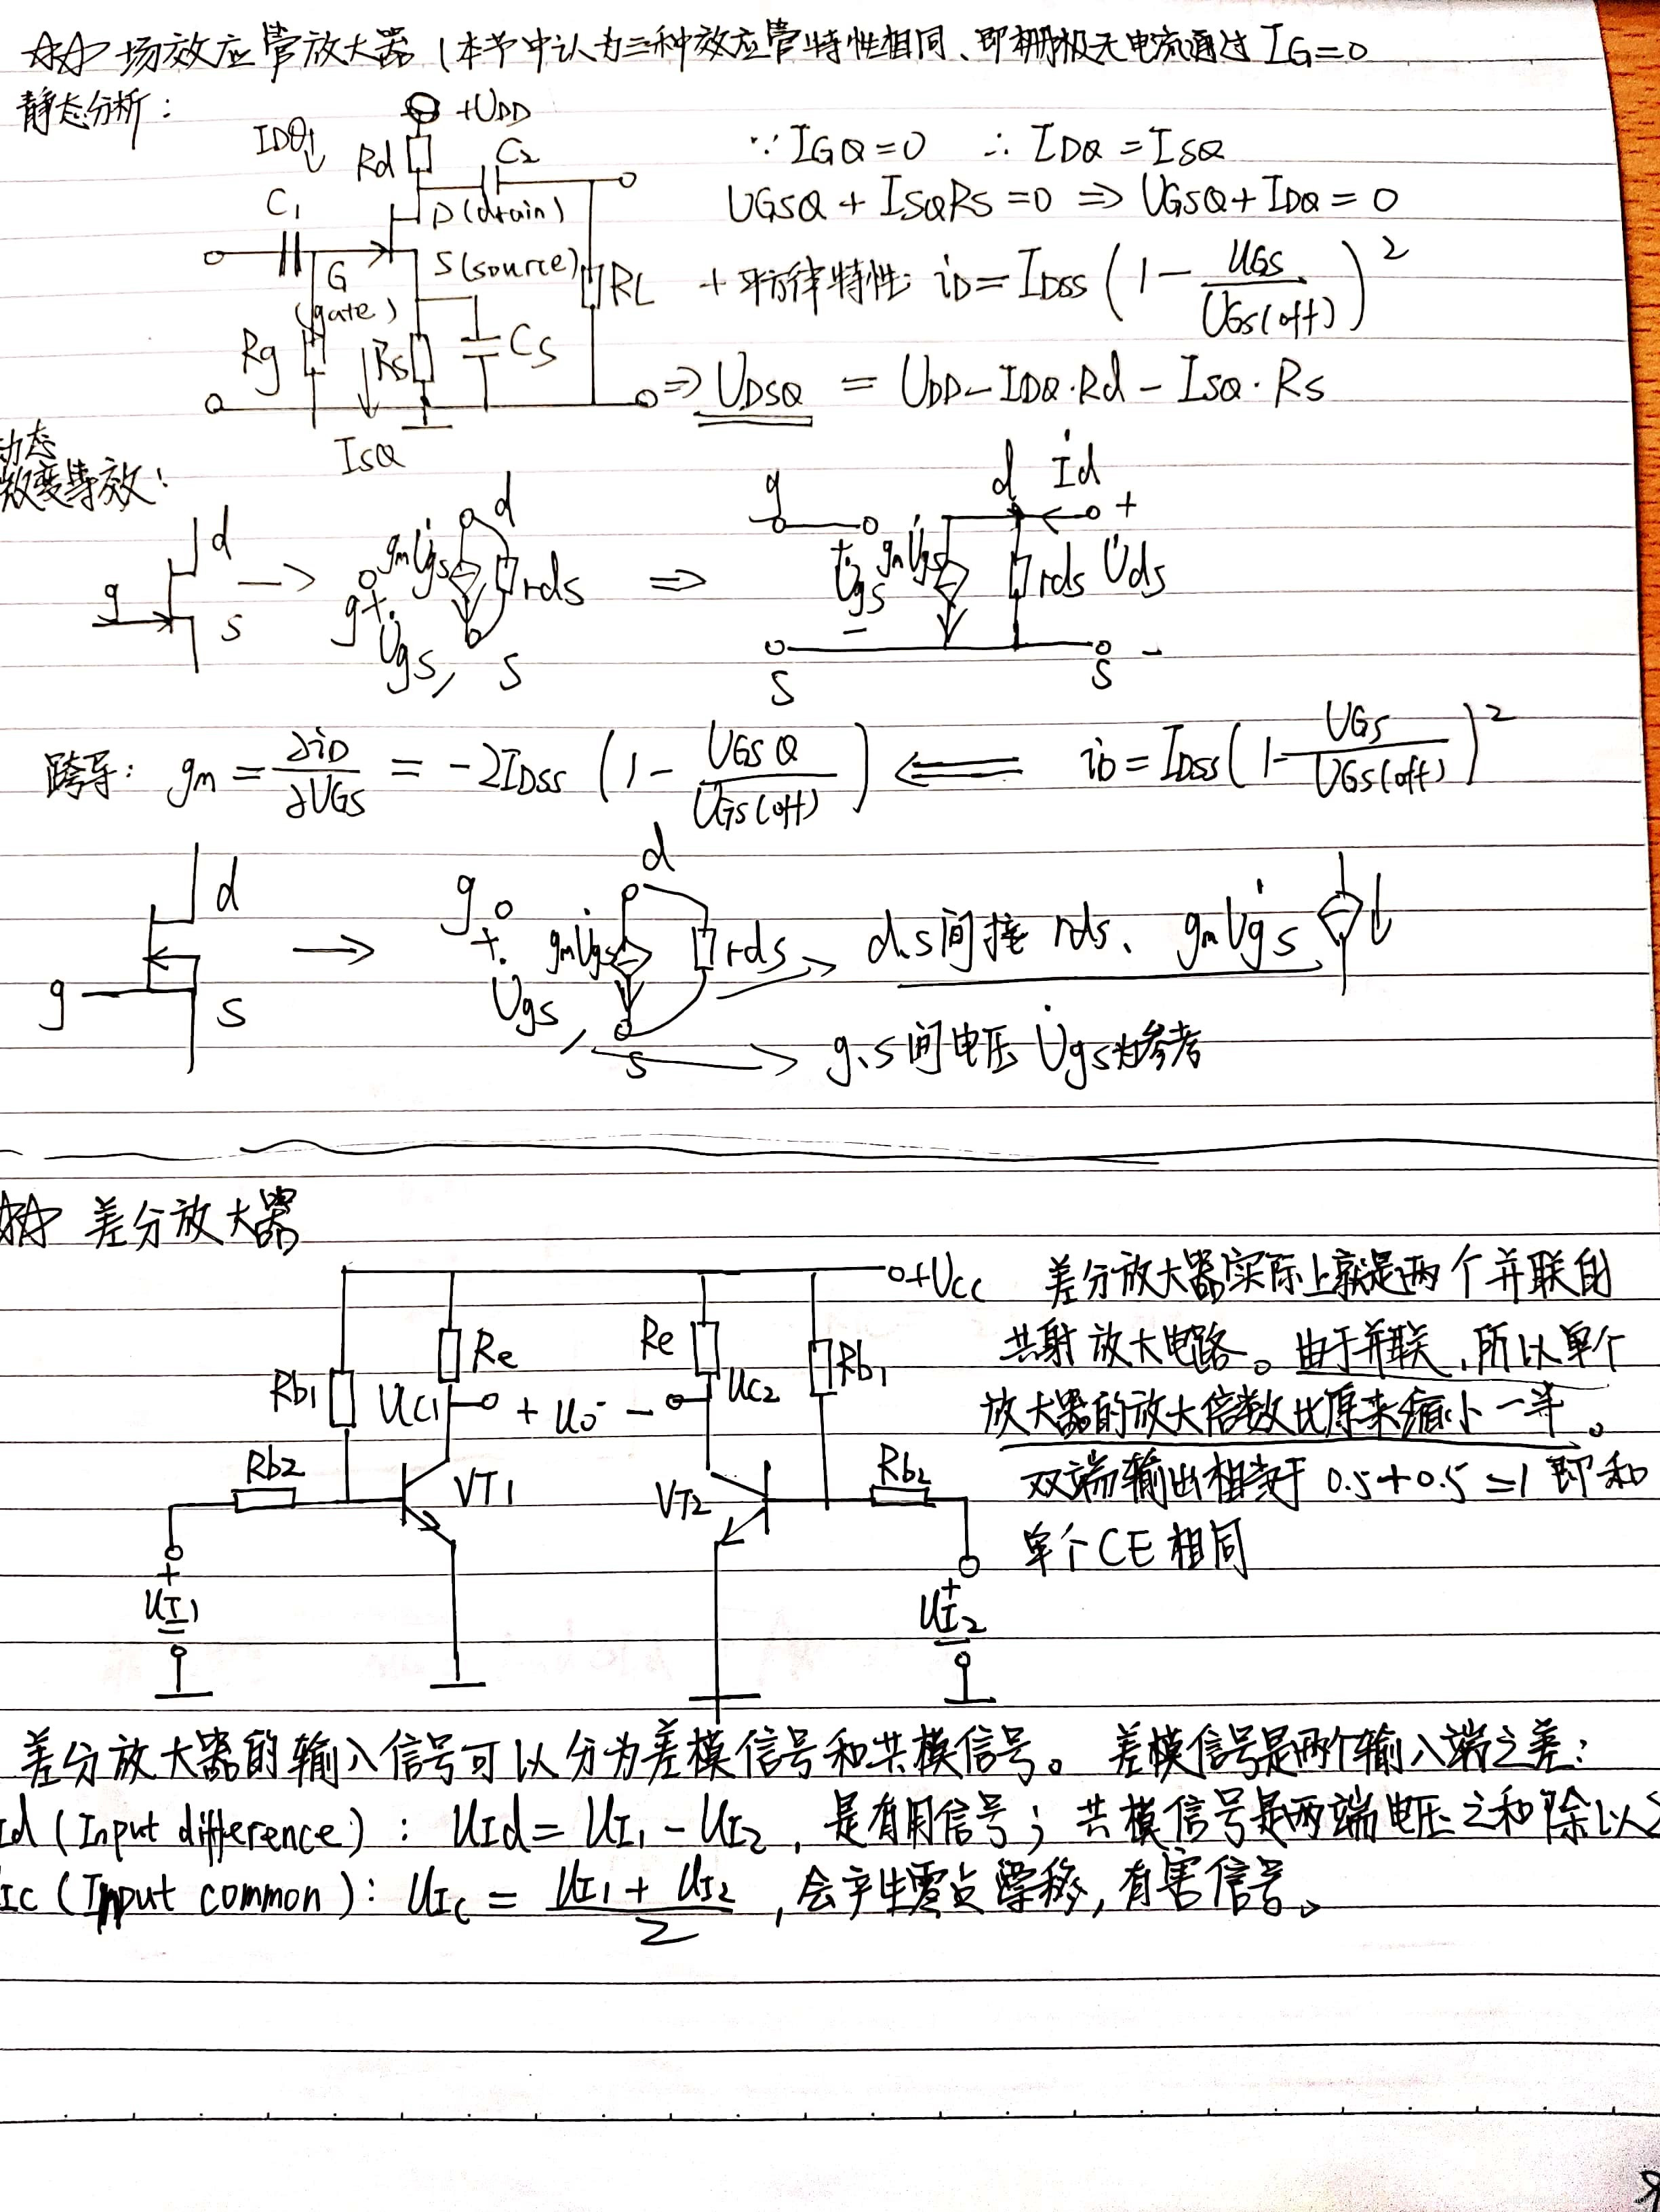 ☆☆ 场效应管放大器 (本节中认为三种效应管特性相同、即栅极无电流通过 IG=0
静态分析：
+UDD
IDQ↓ Rd C2
C1 D(drain)
G (gate) S(source) RL
Rg Rs CS
ISQ
∵ IGQ=0 ∴ IDQ = ISQ
UGSQ + ISQRS = 0 ⇒ UGSQ + IDQ = 0
+ 平方律特性: iD = IDSS (1 - UGS/UGS(off))²
⇒ UDSQ = UDD - IDQ·Rd - ISQ·RS
动态
微变等效：
g d s → gmU̇gs g + U̇gs - d rds s ⇒ g + U̇gs - gmU̇gs d İd + rds U̇ds - S S
跨导: gm = ∂iD/∂UGS = -2IDSS (1 - UGSQ/UGS(off)) ⇐ iD = IDSS (1 - UGS/UGS(off))²
g d s → g + U̇gs - gmU̇gs d rds s → d.s间接 rds、gmU̇gs ↓
→ g、s间电压 U̇gs为参考
☆☆ 差分放大器
o+Ucc
Rb1 Re Re Rb1
UC1 + uo - UC2
Rb2 VT1 VT2 Rb2
+ UI1 - + UI2 -
差分放大器实际上就是两个并联的
共射放大电路。由于并联，所以单个
放大器的放大倍数比原来缩小一半。
双端输出相当于 0.5+0.5=1 即和
单个CE相同
差分放大器的输入信号可以分为差模信号和共模信号。差模信号是两个输入端之差：
Id (Input difference) : UId = UI1 - UI2，是有用信号；共模信号是两端电压之和除以2
Ic (Input common) : UIc = (UI1 + UI2)/2，会产生零点漂移，有害信号。